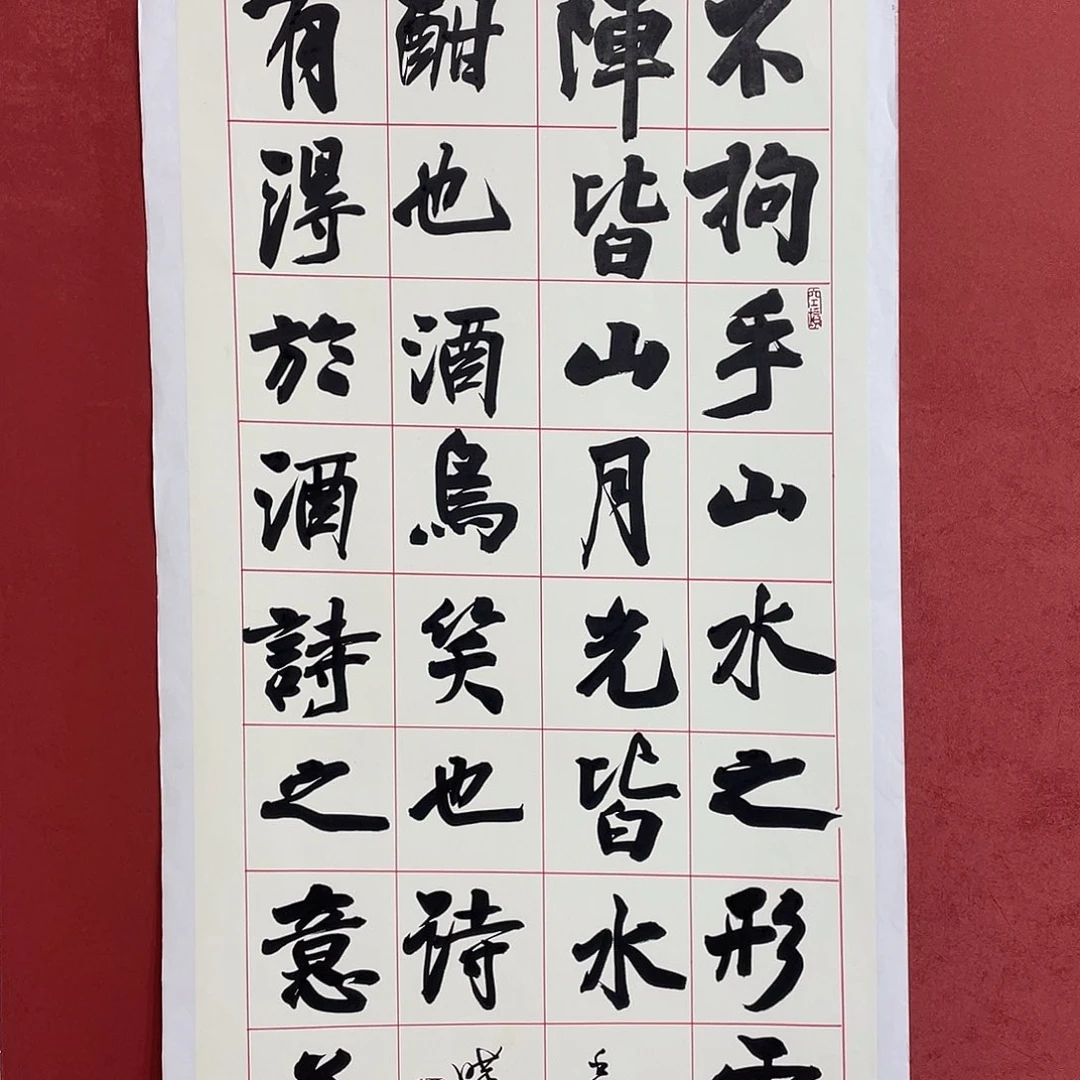 不拘乎山水之形雲
陣皆山月光皆水
有得於酒詩之意花
酣也酒鳥笑也诗